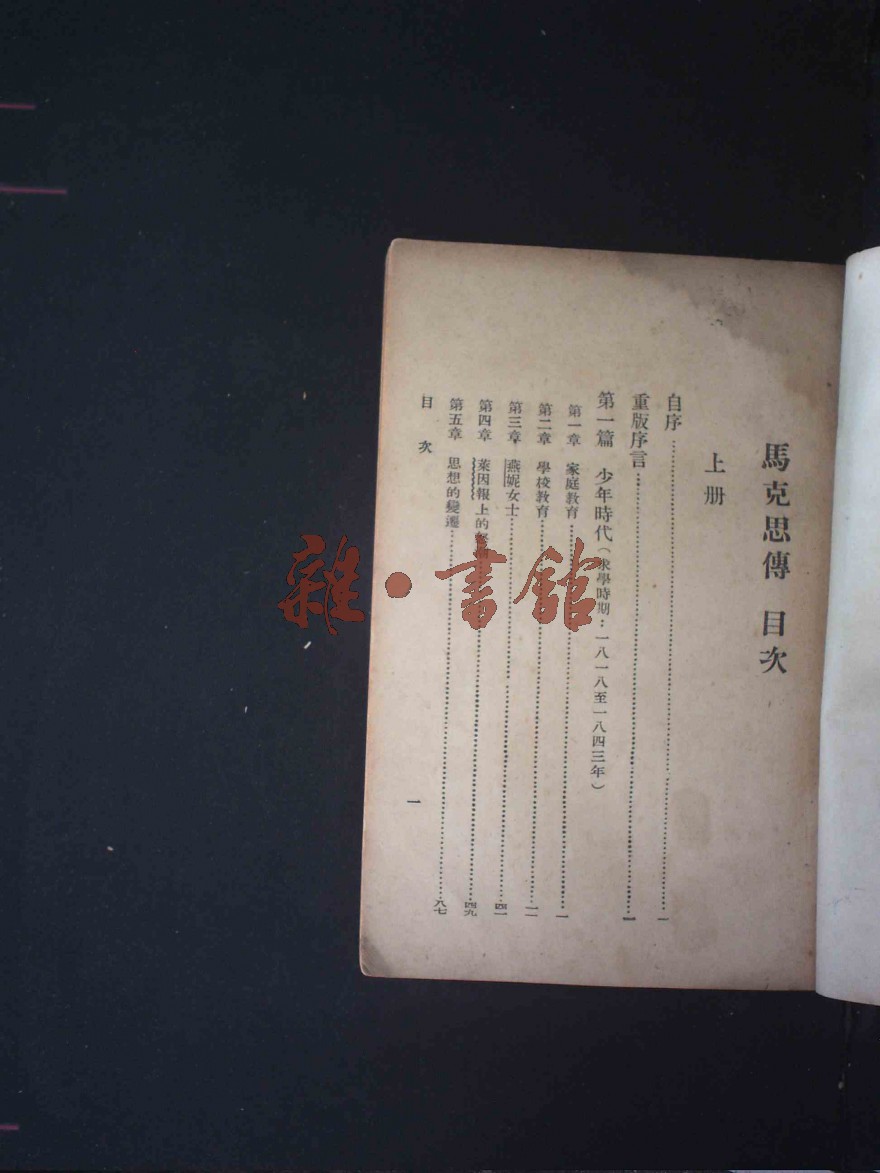 馬克思傳 目次
上册
自序 一
重版序言 一
第一篇 少年時代(求學時期:一八一八至一八四三年)
第一章 家庭教育 一
第二章 學校教育 一二
第三章 燕妮女士 四一
第四章 萊因報上的 四九
第五章 思想的變遷 八七
目次
一
雜·書館